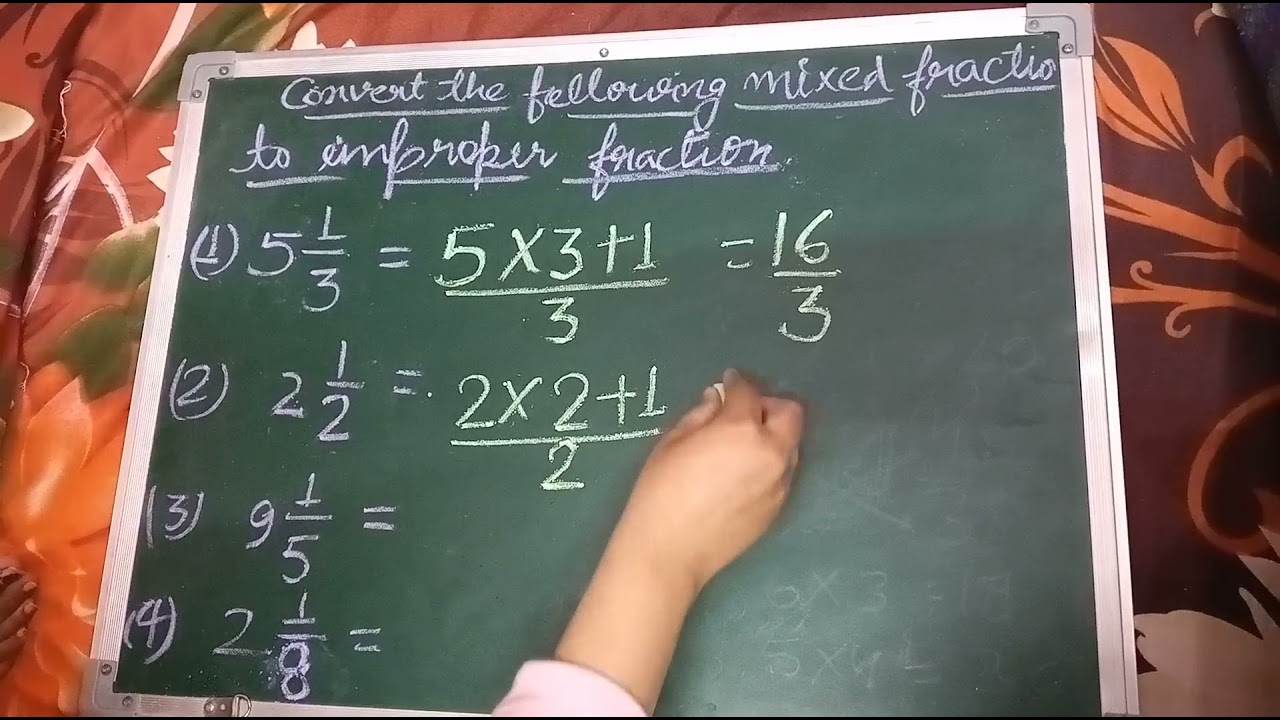 Convert the following mixed fractio
to improper fraction
(1) 5 1/3 = 5×3+1/3 = 16/3
(2) 2 1/2 = 2×2+1/2
(3) 9 1/5 =
(4) 2 1/8 =